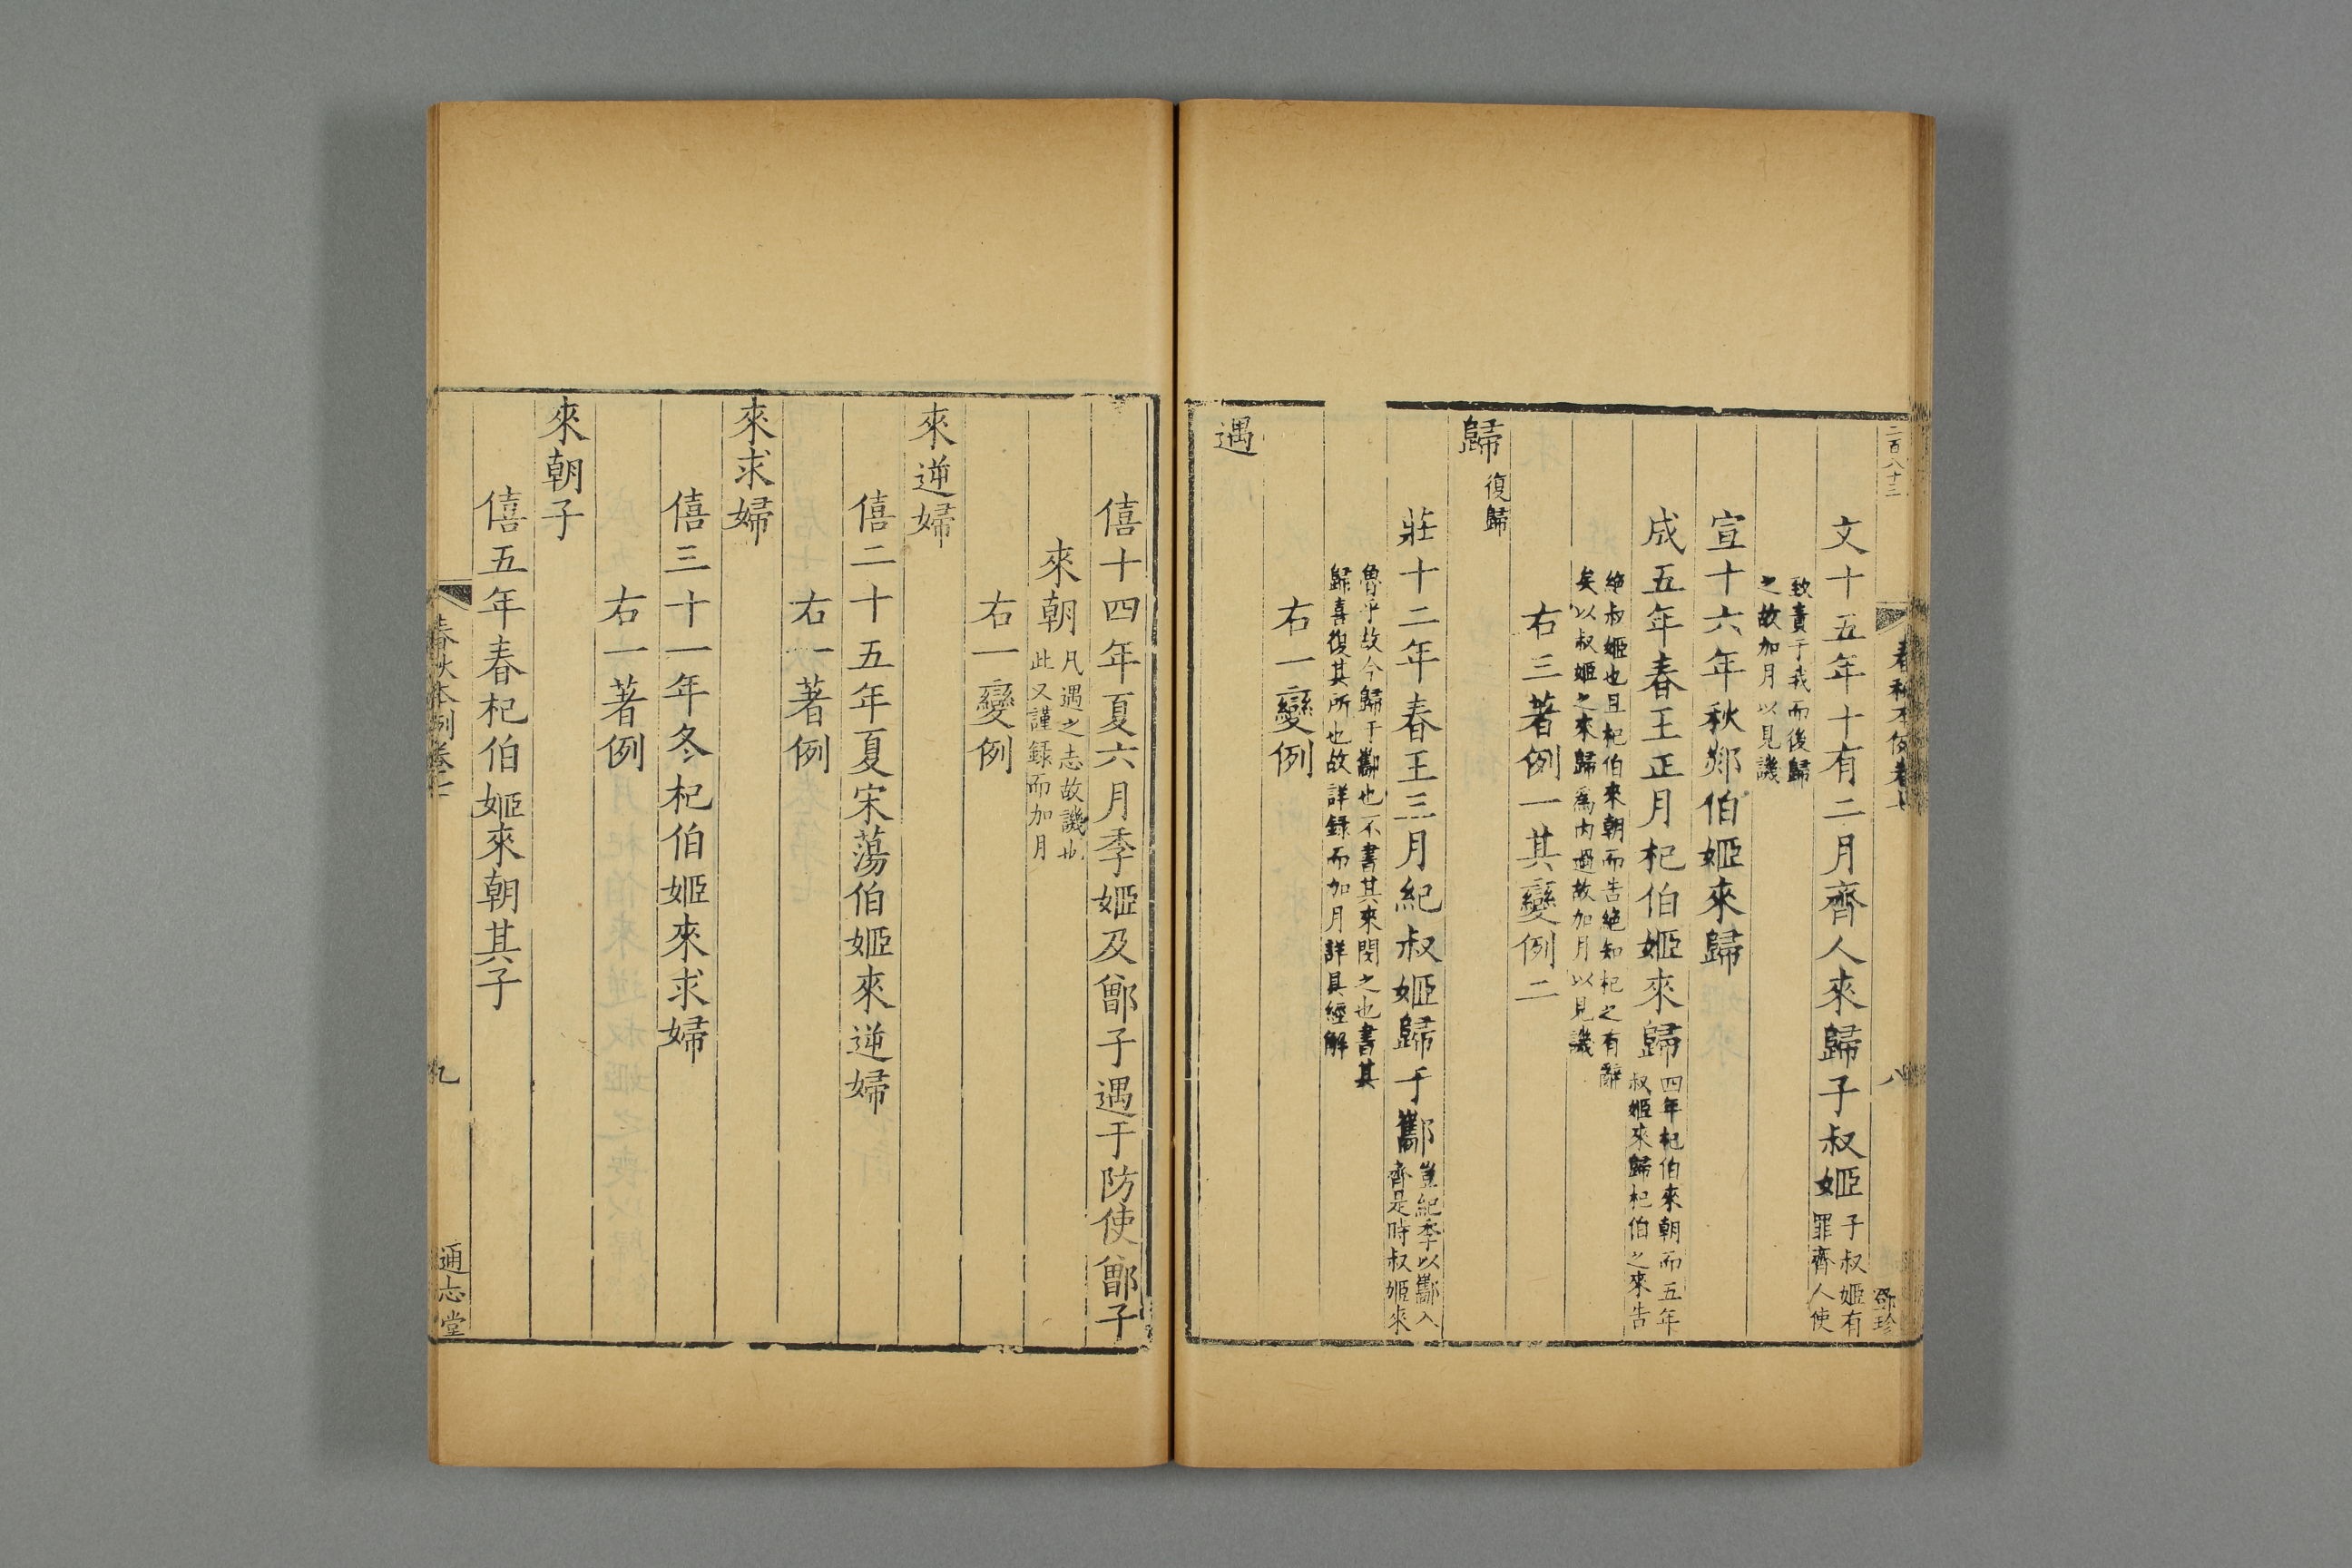 二百八十三
春秋本例卷七
八
鄧珍
文十五年十有二月齊人來歸子叔姬子叔姬有罪齊人使
致責于我而後歸之故加月以見譏
宣十六年秋郯伯姬來歸
成五年春王正月杞伯姬來歸四年杞伯來朝而五年叔姬來歸杞伯之來告
絶叔姬也且杞伯來朝而告絶知杞之有辭矣以叔姬之來歸爲内過故加月以見譏
右三著例一其變例二
歸復歸
莊十二年春王三月紀叔姬歸于酅豈紀季以酅入齊是時叔姬來
魯乎故今歸于酅也不書其來閔之也書其歸喜復其所也故詳録而加月詳具經解
右一變例
遇
僖十四年夏六月季姬及鄫子遇于防使鄫子
來朝凡遇之志故譏也此又謹録而加月
右一變例
來逆婦
僖二十五年夏宋蕩伯姬來逆婦
右一著例
來求婦
僖三十一年冬杞伯姬來求婦
右一著例
來朝子
僖五年春杞伯姬來朝其子
春秋本例卷七
九
通志堂